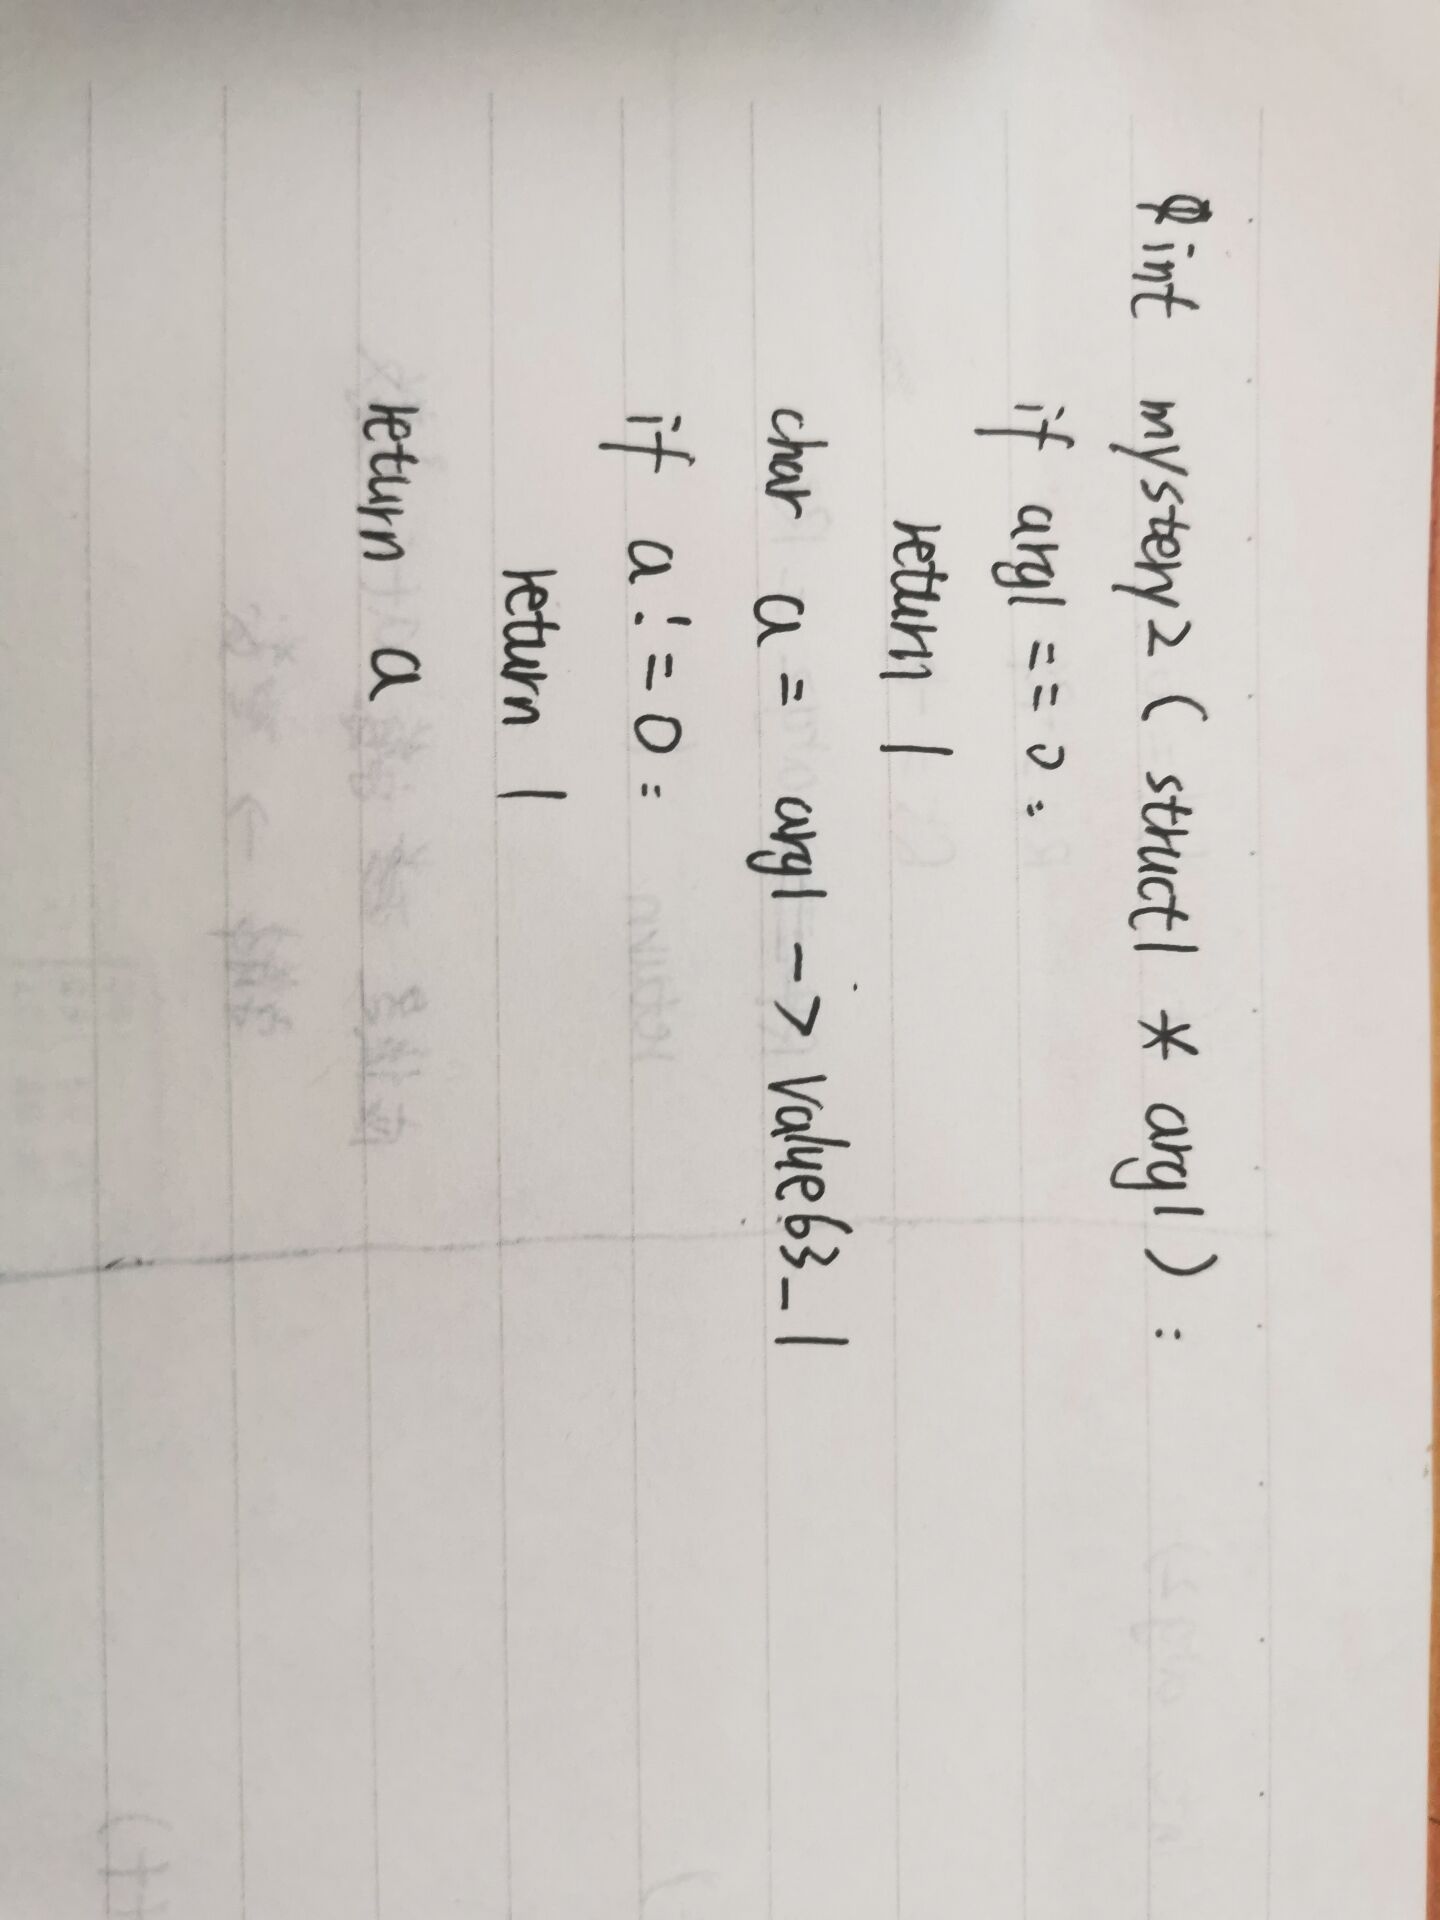 int mystery2 ( struct1 * arg1 ) :
if arg1 == 0 :
return 1
char a = arg1 -> value63_1
if a != 0 :
return 1
return a